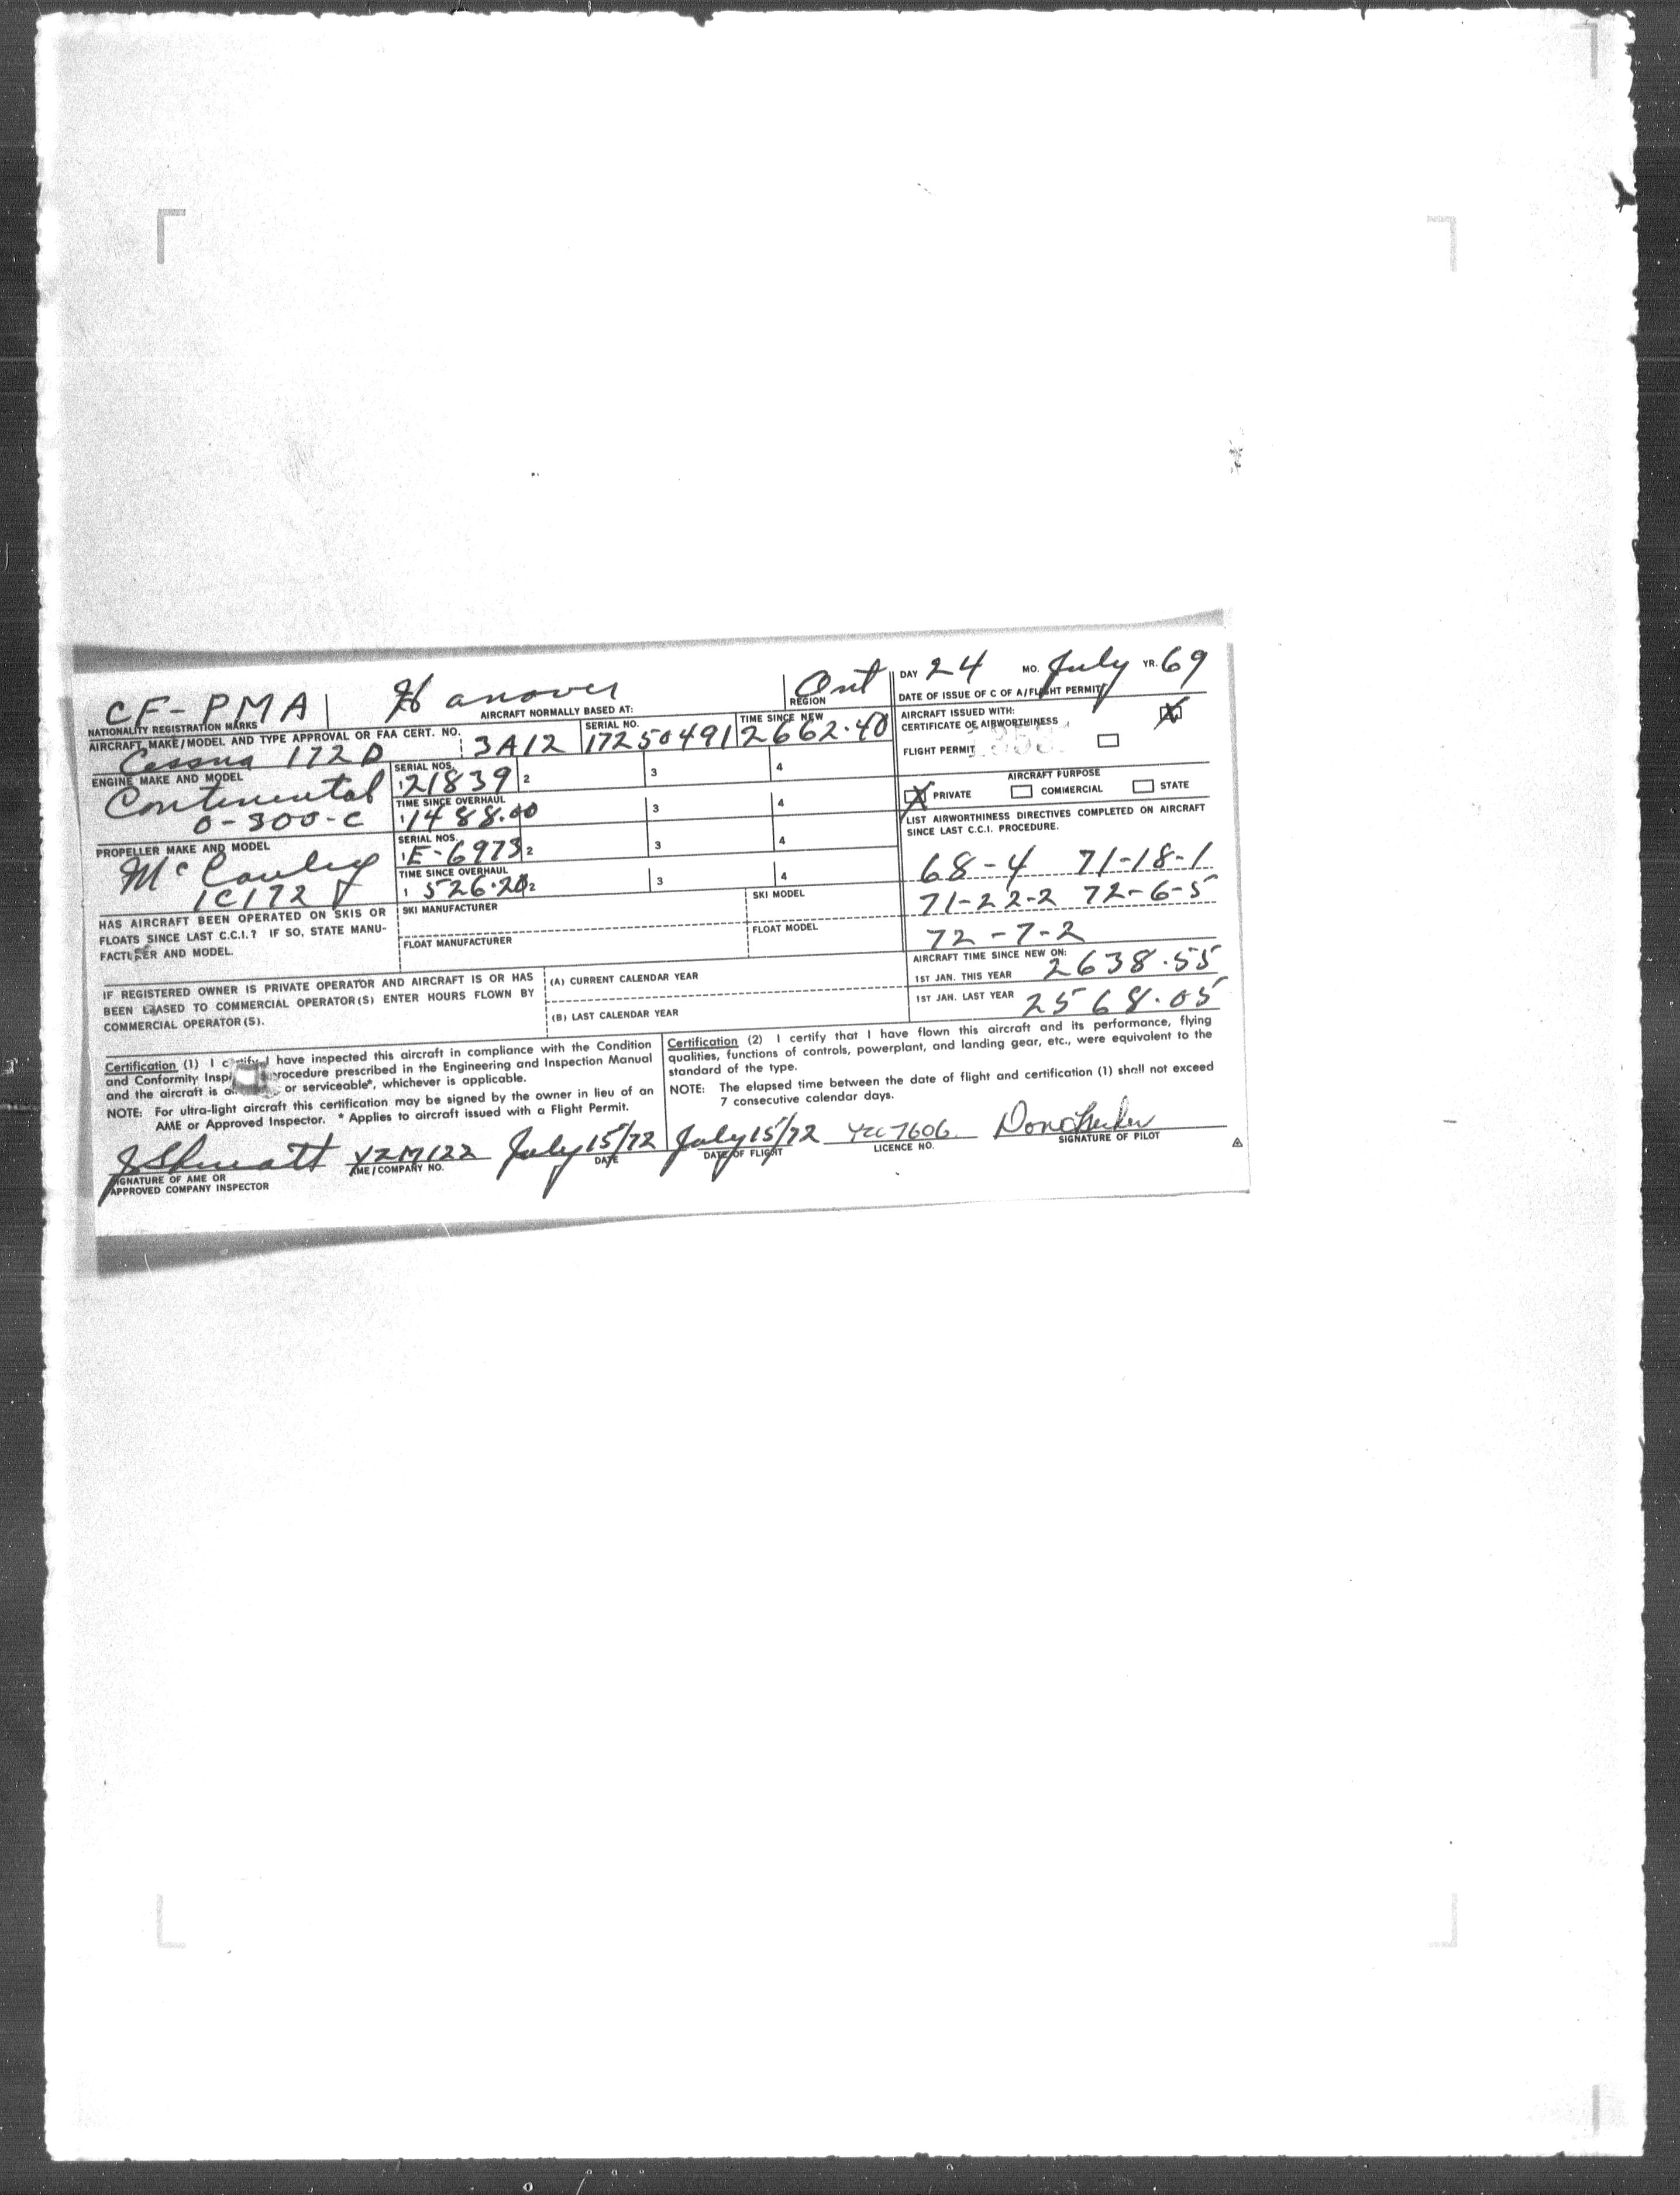 CF-PMA Hanover Ont
NATIONALITY REGISTRATION MARKS AIRCRAFT NORMALLY BASED AT: REGION
DAY 24 MO. July YR. 69
DATE OF ISSUE OF C OF A/FLIGHT PERMIT
AIRCRAFT MAKE/MODEL AND TYPE APPROVAL OR FAA CERT. NO. SERIAL NO. TIME SINCE NEW
Cessna 172D 3A12 17250491 2662.40
AIRCRAFT ISSUED WITH:
CERTIFICATE OF AIRWORTHINESS X
FLIGHT PERMIT
ENGINE MAKE AND MODEL
Continental
O-300-C
SERIAL NOS.
1 21839 2 3 4
TIME SINCE OVERHAUL
1 1488.00 3 4
AIRCRAFT PURPOSE
X PRIVATE COMMERCIAL STATE
PROPELLER MAKE AND MODEL
McCauley
1C172
SERIAL NOS.
1 E-6973 2 3 4
TIME SINCE OVERHAUL
1 526.20 2 3 4
LIST AIRWORTHINESS DIRECTIVES COMPLETED ON AIRCRAFT
SINCE LAST C.C.I. PROCEDURE.
68-4 71-18-1
71-22-2 72-6-5
72-7-2
HAS AIRCRAFT BEEN OPERATED ON SKIS OR
FLOATS SINCE LAST C.C.I.? IF SO, STATE MANU-
FACTURER AND MODEL.
SKI MANUFACTURER SKI MODEL
FLOAT MANUFACTURER FLOAT MODEL
AIRCRAFT TIME SINCE NEW ON:
1ST JAN. THIS YEAR 2638.55
1ST JAN. LAST YEAR 2568.05
IF REGISTERED OWNER IS PRIVATE OPERATOR AND AIRCRAFT IS OR HAS
BEEN LEASED TO COMMERCIAL OPERATOR(S) ENTER HOURS FLOWN BY
COMMERCIAL OPERATOR(S).
(A) CURRENT CALENDAR YEAR
(B) LAST CALENDAR YEAR
Certification (1) I certify I have inspected this aircraft in compliance with the Condition
and Conformity Insp procedure prescribed in the Engineering and Inspection Manual
and the aircraft is or serviceable*, whichever is applicable.
NOTE: For ultra-light aircraft this certification may be signed by the owner in lieu of an
AME or Approved Inspector. * Applies to aircraft issued with a Flight Permit.
Certification (2) I certify that I have flown this aircraft and its performance, flying
qualities, functions of controls, powerplant, and landing gear, etc., were equivalent to the
standard of the type.
NOTE: The elapsed time between the date of flight and certification (1) shall not exceed
7 consecutive calendar days.
YZM122 July 15/72 July 15/72 YZC 7606
SIGNATURE OF AME OR
APPROVED COMPANY INSPECTOR
AME/COMPANY NO. DATE DATE OF FLIGHT LICENCE NO. SIGNATURE OF PILOT